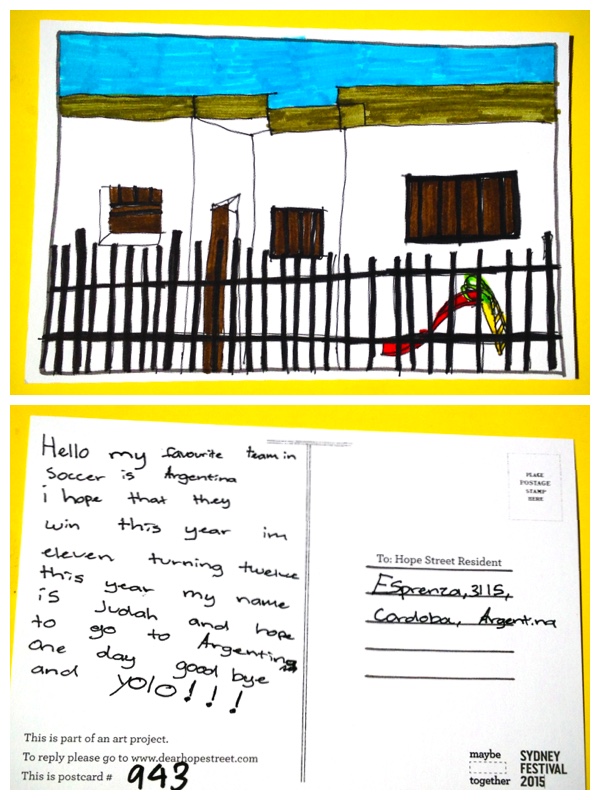 Hello my favourite team in
Soccer is Argentina
i hope that they
win this year im
eleven turning twelve
this year my name
is Judah and hope
to go to Argentina
one day good bye
and yolo!!!
This is part of an art project.
To reply please go to www.dearhopestreet.com
This is postcard # 943
PLACE
POSTAGE
STAMP
HERE
To: Hope Street Resident
Esprenza, 3115,
Cordoba, Argentina
maybe
together
SYDNEY
FESTIVAL
2015